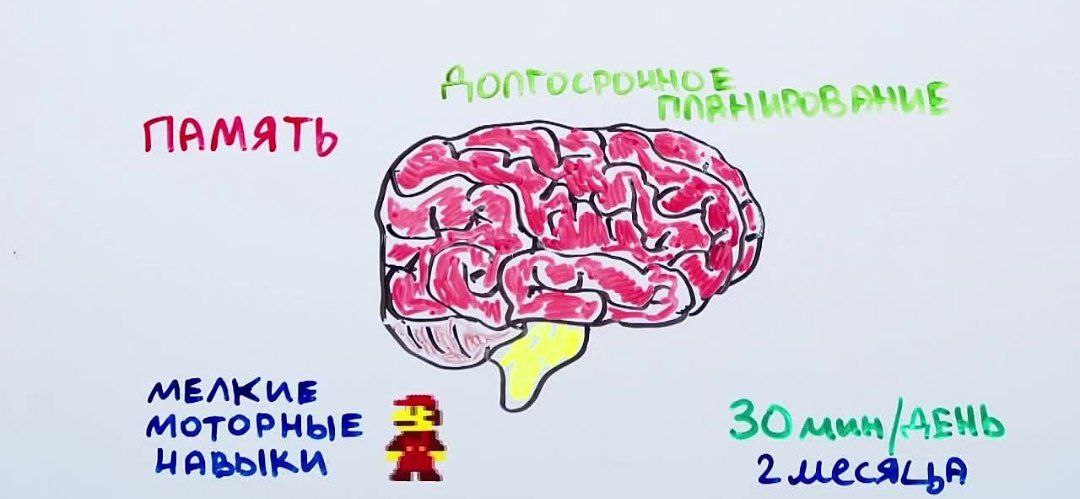 ДОЛГОСРОЧНОЕ
ПЛАНИРОВАНИЕ
ПАМЯТЬ
МЕЛКИЕ
МОТОРНЫЕ
НАВЫКИ
30 мин/ДЕНЬ
2 месяца